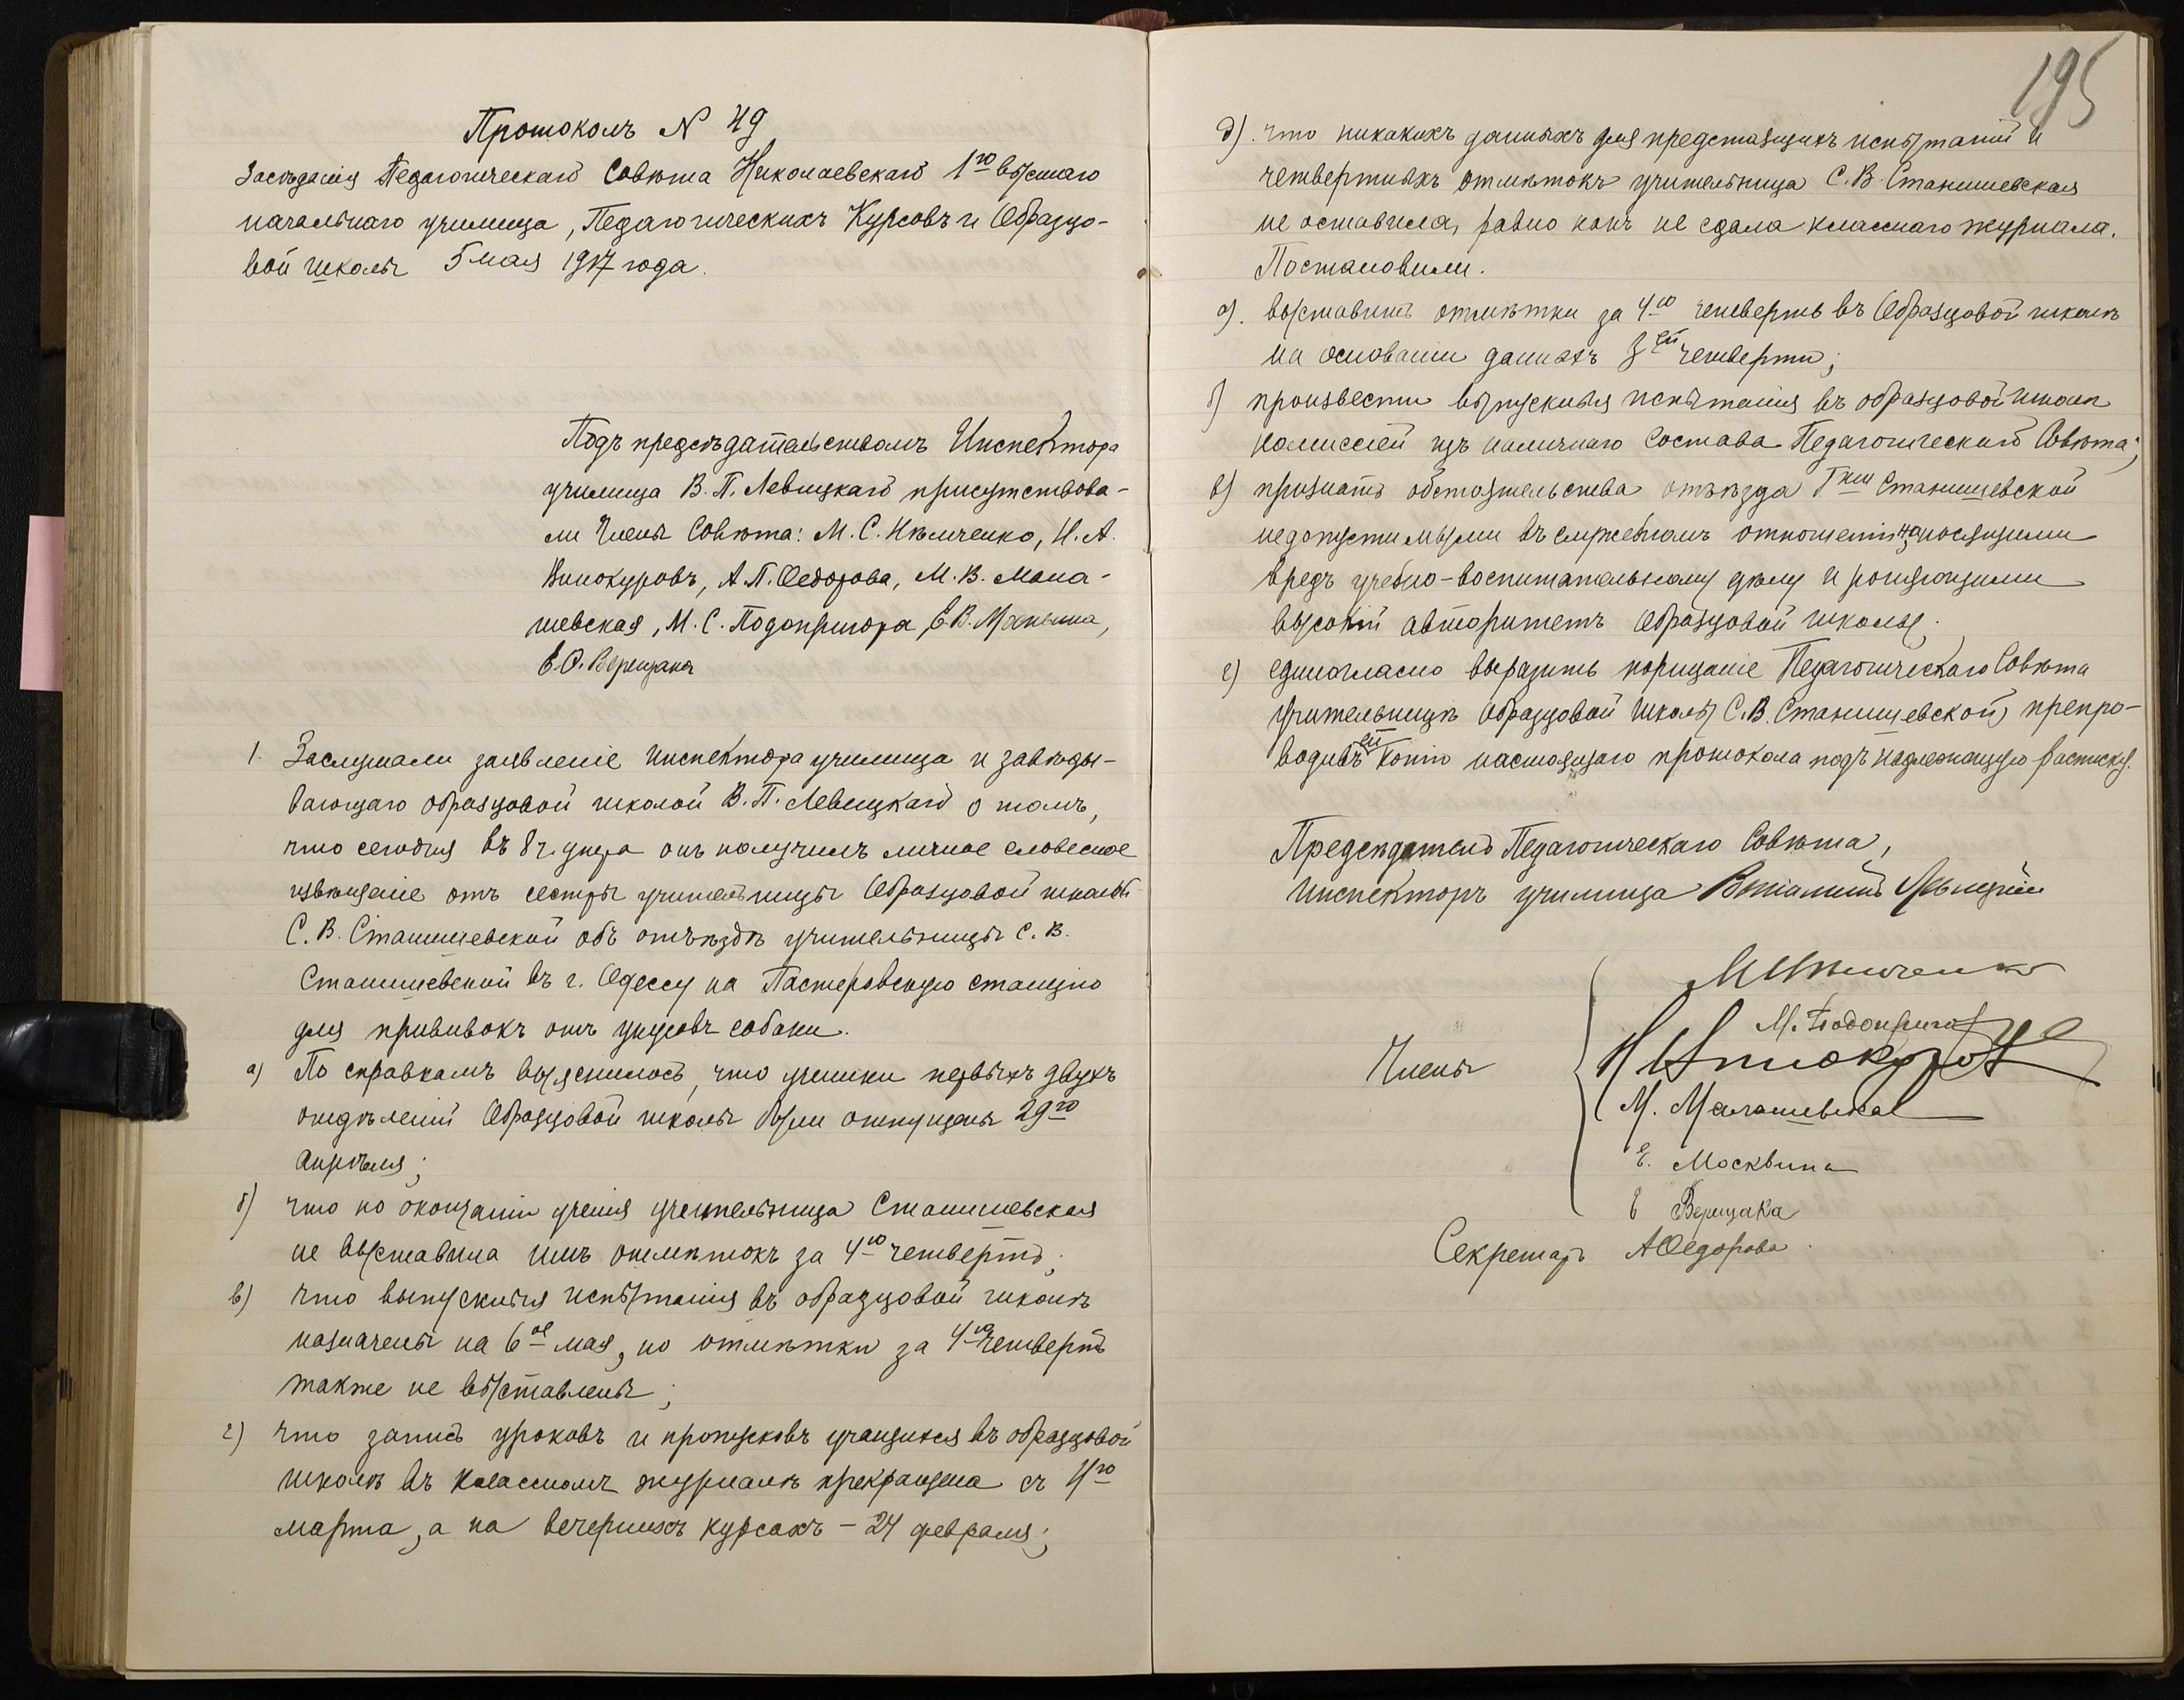 Протоколъ N 49
Засѣданія Педагогическаго Совѣта Николаевскаго 1го высшаго
начальнаго училища, Педагогическихъ Курсовъ и Образцо-
вой школы 5 мая 1917 года.
Подъ предсѣдательствомъ Инспектора
училища В. П. Левицкаго присутствова-
ли Члены Совѣта: М. С. Ильченко, Н. А.
Винокуровъ, А. П. Ѳедорова, М. В. Мала-
шевская, М. С. Подопригора, Е. В. Москвина,
Е. О. Верещака
1. Заслушали заявленіе инспектора училища и завѣды-
вающаго образцовой школой В. П. Левицкаго о томъ,
что сегодня въ 8 ч. утра онъ получилъ личное словесное
извѣщеніе отъ сестры учительницы Образцовой школы
С. В. Станишевской объ отъѣздѣ учительницы С. В.
Станишевской въ г. Одессу на Пастеровскую станцію
для прививокъ отъ укусовъ собаки.
а) По справкамъ выяснилось, что ученики первыхъ двухъ
отдѣленій Образцовой школы были отпущены 29го
Апрѣля;
б) что по окончаніи ученія учительница Станишевская
не выставила имъ отмѣтокъ за 4ю четверть;
в) что выпускныя испытанія въ образцовой школѣ
назначены на 6ое мая, но отмѣтки за 4ю четверть
также не выставлены;
г) что запись уроковъ и пропусковъ учащихся въ образцовой
школѣ въ классномъ журналѣ прекращена съ 4го
марта, а на вечернихъ курсахъ – 24 февраля;
195
д). что никакихъ данныхъ для предстоящихъ испытаній и
четвертныхъ отмѣтокъ учительница С. В. Станишевская
не оставила, равно какъ не сдала класснаго журнала.
Постановили.
а). выставить отмѣтки за 4ю четверть въ Образцовой школѣ
на основаніи данныхъ 3ей четверти;
б) произвести выпускныя испытанія въ образцовой школѣ
комиссіей изъ наличнаго состава Педагогическаго Совѣта;
в) признать обстоятельства отъѣзда Гжи Станишевской
недопустимыми въ служебномъ отношеніи, наносящими
вредъ учебно-воспитательному дѣлу и роняющими
высокій авторитетъ Образцовой школы;
г) единогласно выразить порицаніе Педагогическаго Совѣта
учительницѣ Образцовой школы С. В. Станишевской, препро-
водивъ ей копію настоящаго протокола подъ надлежащую расписку.
Предсѣдатель Педагогическаго Совѣта,
Инспекторъ училища Левицкій
МИльченко
М. Подопригора
Члены
НВинокуровъ
М. Малашевская
Е. Москвина
Е Верещака
Секретарь АѲедорова.